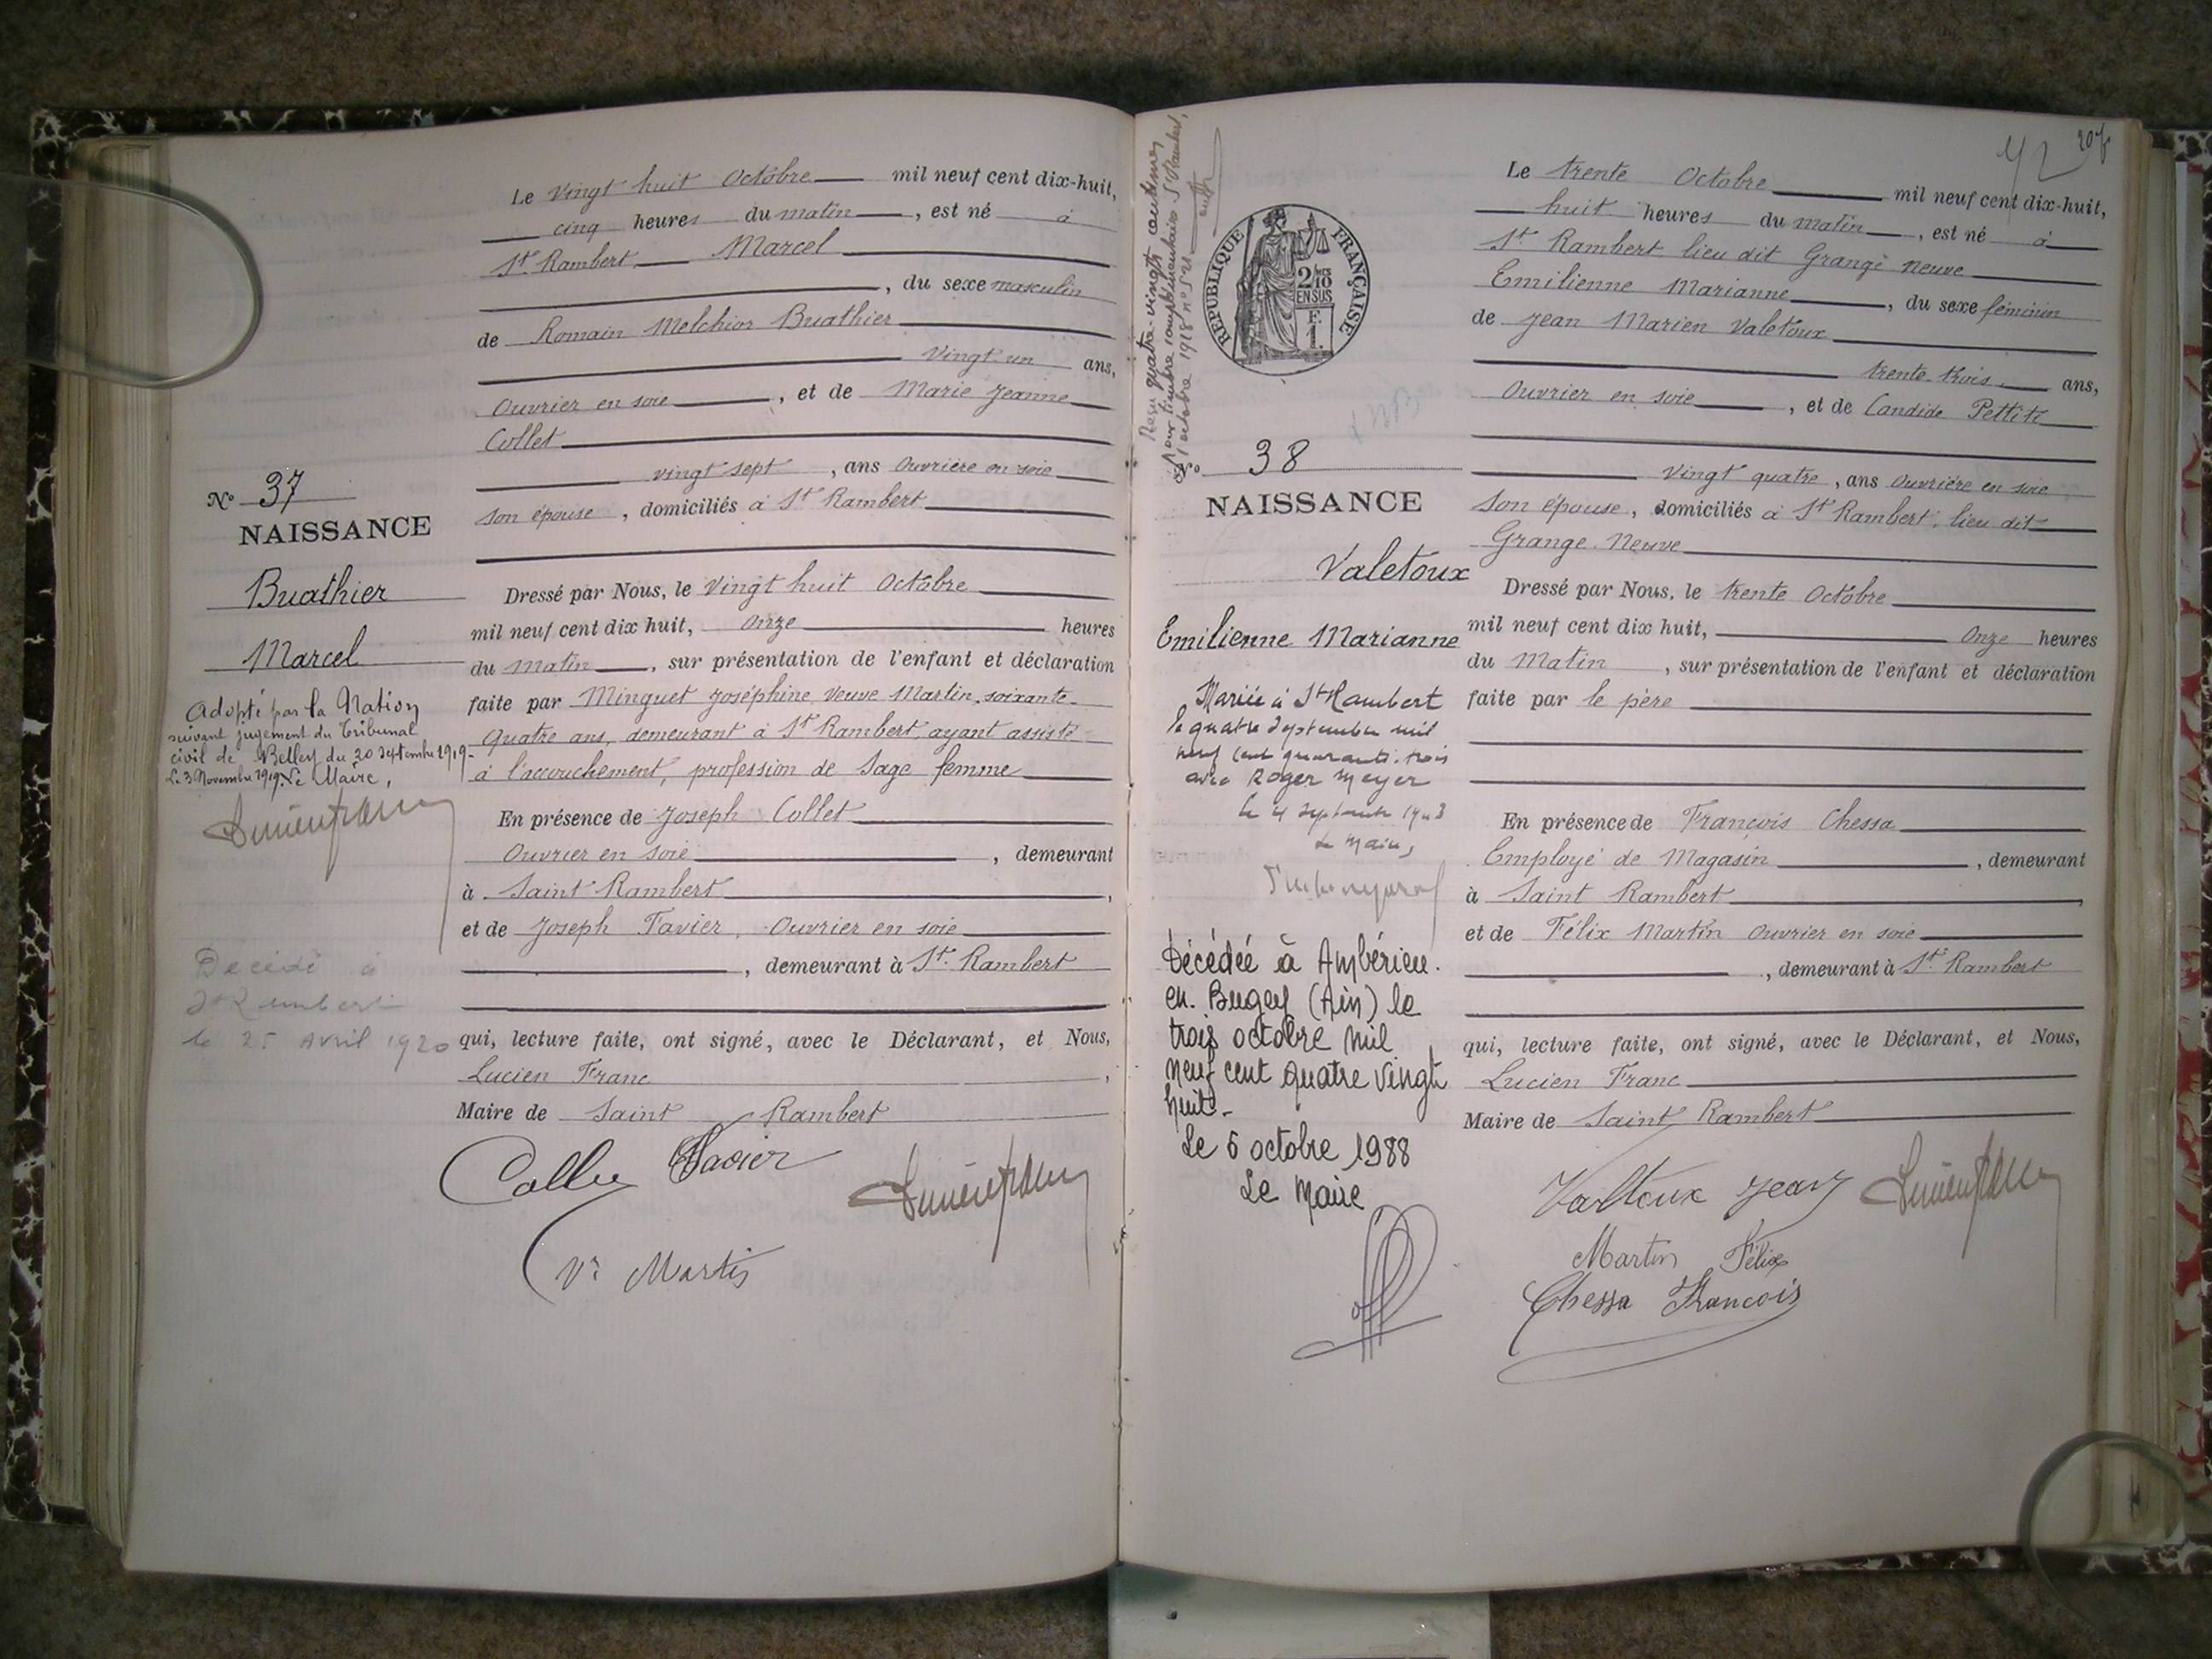 Le Vingt huit Octobre mil neuf cent dix-huit,
cinq heures du matin, est né à
St Rambert Marcel
, du sexe masculin
de Romain Melchior Buathier
Vingt un ans,
Ouvrier en soie, et de Marie Jeanne
Collet
vingt sept, ans Ouvrière en soie
son épouse, domiciliés à St Rambert
Dressé par Nous, le Vingt huit Octobre
mil neuf cent dix huit, Onze heures
du Matin, sur présentation de l'enfant et déclaration
faite par Minguet Joséphine Veuve Martin, soixante-
quatre ans, demeurant à St Rambert, ayant assisté
à l'accouchement, profession de Sage femme
En présence de Joseph Collet
Ouvrier en soie, demeurant
à Saint Rambert,
et de Joseph Favier, Ouvrier en soie
, demeurant à St. Rambert
qui, lecture faite, ont signé, avec le Déclarant, et Nous,
Lucien Franc,
Maire de Saint Rambert
Favier
Vve Martin
No 37
NAISSANCE
Buathier
Marcel
Adopté par la Nation
suivant jugement du Tribunal
civil de Belley du 20 septembre 1919-
Le 3 Novembre 1919. Le Maire,
Décédé à
St Rambert
le 25 Avril 1920
42
207
RÉPUBLIQUE FRANÇAISE
2/10
EN SUS
F.
1.
No 38
NAISSANCE
Valetoux
Emilienne Marianne
Mariée à St Rambert
le quatre Septembre mil
neuf cent quarante-trois
avec Roger Meyer
Le 4 Septembre 1943
Le Maire,
Décédée à Ambérieu-
en-Bugey (Ain) le
trois octobre mil
neuf cent quatre vingt
huit-
Le 6 octobre 1988
Le Maire
Le trente Octobre mil neuf cent dix-huit,
huit heures du matin, est né à
St. Rambert lieu dit Grange Neuve
Emilienne Marianne, du sexe féminin
de Jean Marien Valetoux
trente trois ans,
Ouvrier en soie, et de Candide Pettiti
Vingt quatre, ans Ouvrière en soie
Son épouse, domiciliés à St Rambert, lieu dit
Grange Neuve
Dressé par Nous, le trente Octobre
mil neuf cent dix huit, Onze heures
du Matin, sur présentation de l'enfant et déclaration
faite par le père
En présence de François Chessa
Employé de Magasin, demeurant
à Saint Rambert,
et de Félix Martin Ouvrier en soie
, demeurant à St. Rambert
qui, lecture faite, ont signé, avec le Déclarant, et Nous,
Lucien Franc
Maire de Saint Rambert
Valtoux Jean
Martin Félix
Chessa Francois